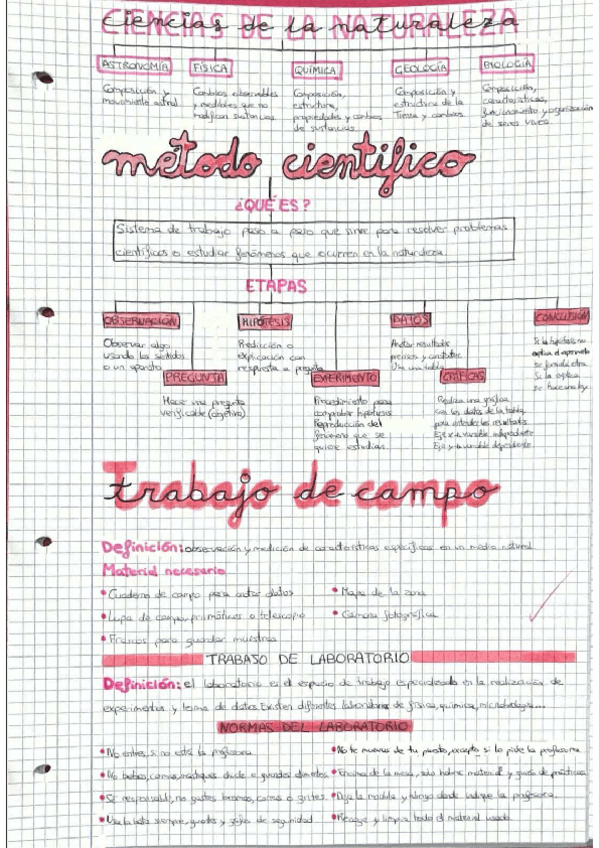 CIENCIAS DE LA NATURALEZA
ASTRONOMÍA
FÍSICA
QUÍMICA
GEOLOGÍA
BIOLOGÍA
Composición y
movimiento astral
Cambios observables
y medibles que no
modifican sustancias
Composición,
estructura,
propiedades y cambios
de sustancias.
Composición y
estructura de la
Tierra y cambios.
Composición,
características,
funcionamiento y organización
de seres vivos.
método científico
¿QUÉ ES?
Sistema de trabajo paso a paso que sirve para resolver problemas
científicos o estudiar fenómenos que ocurren en la naturaleza.
ETAPAS
OBSERVACIÓN
HIPÓTESIS
DATOS
CONCLUSIÓN
Observar algo
usando los sentidos
o un aparato
Predicción o
explicación con
respuesta a pregunta
Anotar resultados
precisos y
Usa una tabla
Si la hipótesis no
explica el
se
Si la explica
se
PREGUNTA
EXPERIMENTO
GRÁFICAS
Hacer una pregunta
verificable (objetiva)
Procedimiento para
comprobar hipótesis
Reproducción del
fenómeno que se
quiere estudiar.
Realiza una gráfica
con los datos de la tabla
para entender los resultados
Eje x → variable independiente
Eje y → variable dependiente
Trabajo de campo
Definición: observación y medición de características específicas en un medio natural
Material necesario
• Cuaderno de campo para anotar datos
• Mapa de la zona
• Lupa de campo, prismáticos o telescopio
• Cámara fotográfica
• Frascos para guardar muestras
TRABAJO DE LABORATORIO
Definición: el laboratorio es el espacio de trabajo especializado en la realización de
experimentos y toma de datos. Existen diferentes laboratorios de física, química, microbiología...
NORMAS DEL LABORATORIO
• No entres, si no está la profesora.
• No te muevas de tu puesto, excepto si lo pide la profesora
• No bebas, comas, mastiques chicle o guardes alimentos
• Encima de la mesa, solo habrá material y guión de prácticas
• Sé responsable, no gastes bromas, corras o grites.
• Deja la mochila y abrigo donde indique la profesora.
• Usa la bata siempre, guantes y gafas de seguridad
• Recoge y limpia todo el material usado.